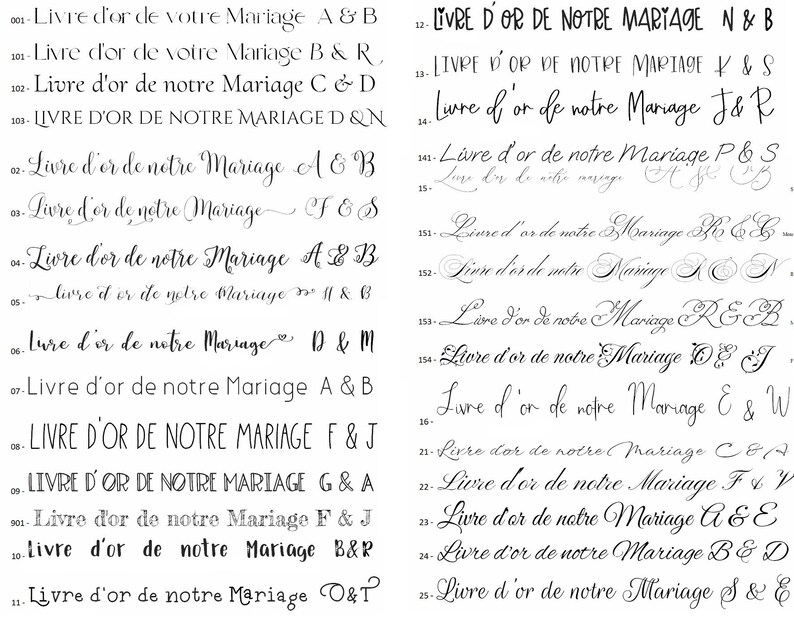 001 - Livre d'or de votre Mariage A & B
101 - Livre d'or de votre Mariage B & R
102 - Livre d'or de notre Mariage C & D
103 - LIVRE D'OR DE NOTRE MARIAGE D & N
02 - Livre d'or de notre Mariage A & B
03 - Livre d'or de notre Mariage F & S
04 - Livre d'or de notre Mariage A & B
05 - livre d'or de notre Mariage H & B
06 - Livre d'or de notre Mariage D & M
07 - Livre d'or de notre Mariage A & B
08 - LIVRE D'OR DE NOTRE MARIAGE F & J
09 - LIVRE D'OR DE NOTRE MARIAGE G & A
901 - Livre d'or de notre Mariage F & J
10 - Livre d'or de notre Mariage B&R
11 - Livre d'or de notre Mariage O&T
12 - LIVRE D'OR DE NOTRE MARIAGE N & B
13 - LIVRE D'OR DE NOTRE MARIAGE K & S
14 - Livre d'or de notre Mariage J & R
141 - Livre d'or de notre Mariage P & S
15 - Livre d'or de notre mariage A & B S
151 - Livre d'or de notre Mariage R & G
152 - Livre d'or de notre Mariage R & N
153 - Livre d'or de notre Mariage R & B
154 - Livre d'or de notre Mariage D & J
16 - Livre d'or de notre Mariage E & W
21 - Livre d'or de notre Mariage C & A
22 - Livre d'or de notre Mariage F & V
23 - Livre d'or de notre Mariage A & E
24 - Livre d'or de notre Mariage B & D
25 - Livre d'or de notre Mariage S & E